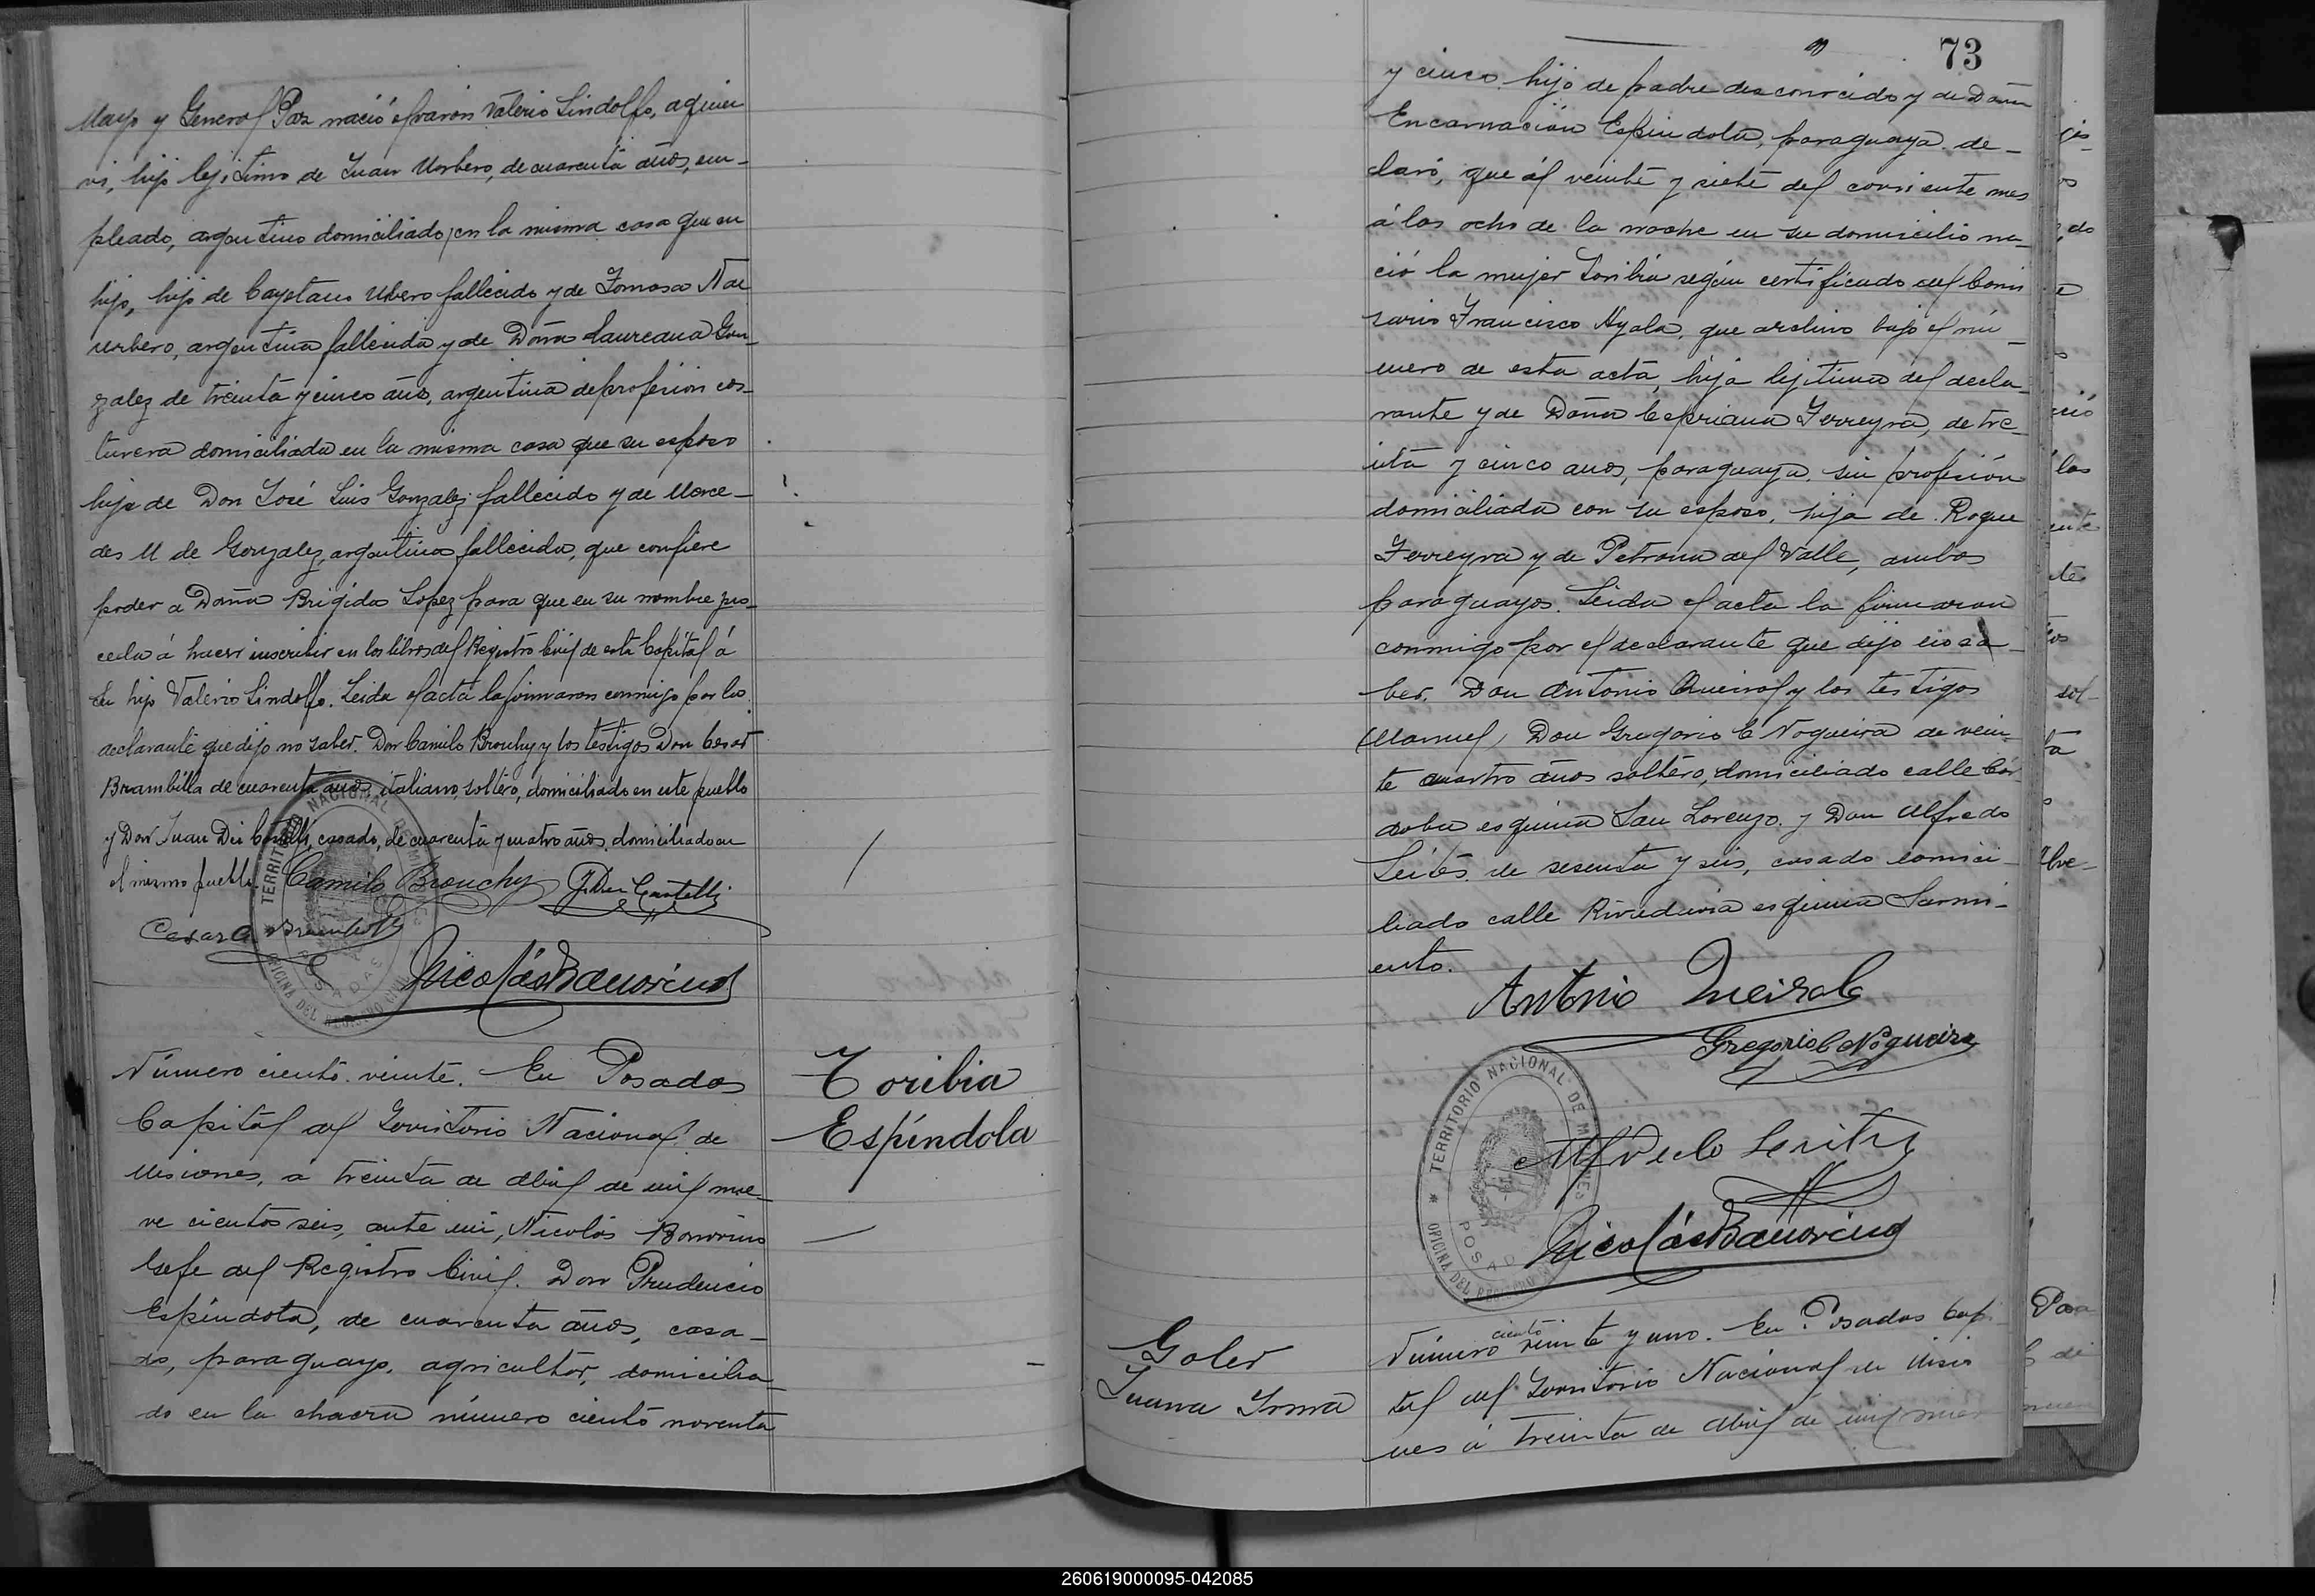 Mayo y General Paz nació el varon Valerio Lindolfo, a quien
ví, hijo lejitimo de Juan Urbero, de cuarenta años, em-
pleado, argentino domiciliado, en la misma casa que su
hijo, hijo de Cayetano Ubero fallecido y de Tomasa N de
Urbero, argentina fallecida y de Doña Laureana Gon-
zalez de treinta y cinco años, argentina de profesion cos-
turera domiciliada en la misma casa que su esposo
hija de Don José Luis Gonzalez fallecido y de Merce-
des M de Gonzalez, argentina fallecida, que confiere
poder a Doña Brigida Lopez para que en su nombre pro-
ceda á hacer inscribir en los libros del Registro Civil de esta Capital á
su hijo Valerio Lindolfo. Leida el acta la firmaron conmigo por la
declarante que dijo no saber. Don Camilo Brouchy y los testigos Don Cesar
Brambilla de cuarenta años, italiano, soltero, domiciliado en este pueblo
y Don Juan Dei Castelli, casado, de cuarenta y cuatro años, domiciliado en
el mismo pueblo.
Camilo Brouchy J. Dei Castelli
Cesar Brambilla
Nicolás Bonorino
TERRITORIO NACIONAL DE MISIONES
OFICINA DEL REGISTRO CIVIL
POSADAS
Número ciento veinte. En Posadas
Capital del Territorio Nacional de
Misiones, a treinta de Abril de mil nue-
ve cientos seis, ante mi, Nicolás Bonorino
Gefe del Registro Civil. Don Prudencio
Espíndola, de cuarenta años, casa-
do, paraguayo, agricultor, domicilia-
do en la chacra número ciento noventa
Toribia
Espíndola
73
y cinco, hijo de padre desconocido y de Doña
Encarnación Espindola, paraguaya, de-
claró, que él veinte y siete del corriente mes
á las ocho de la noche en su domicilio na-
ció la mujer Toribia según certificado del Comi
sario Francisco Ayala, que archivo bajo el nú-
mero de esta acta, hija lejitima del decla-
rante y de Doña Cepriana Ferreyra, de tre-
inta y cinco años, paraguaya, sin profesión
domiciliada con su esposo, hija de Roque
Ferreyra y de Petrona del Valle, ambos
paraguayos. Leida el acta la firmaron
conmigo por el declarante que dijo no sa-
ber, Don Antonio Queirol y los testigos
(Manuel) Don Gregorio C Nogueira de vein
te cuatro años soltero, domiciliado calle Cór
doba esquina San Lorenzo y Don Alfredo
Leites de sesenta y seis, casado domici-
liado calle Rivadavia esquina Sarmi-
ento.
Antonio Queirol
Gregorio C Nogueira
Alfredo Leites
Nicolás Bonorino
TERRITORIO NACIONAL DE MISIONES
OFICINA DEL REGISTRO CIVIL
POSADAS
Goler
Juana Irma
Número ciento veinte y uno. En Posadas Capi
tal del Territorio Nacional de Misio
nes á treinta de Abril de mil nue
260619000095-042085